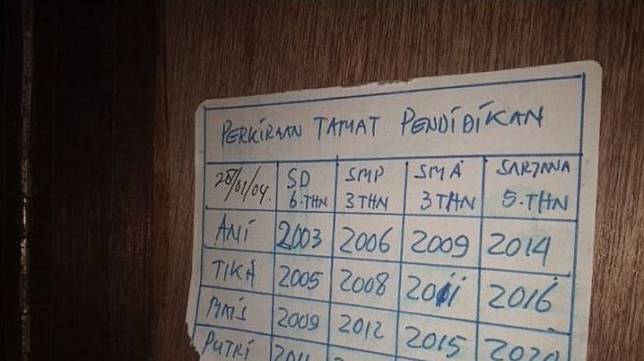 PERKIRAAN TAMAT PENDIDIKAN
28/01/04. SD 6.THN SMP 3 THN SMA 3 THN SARJANA 5.THN
ANI 2003 2006 2009 2014
TIKA 2005 2008 2011 2016
MAIS 2009 2012 2015 2020
PUTRI 2011